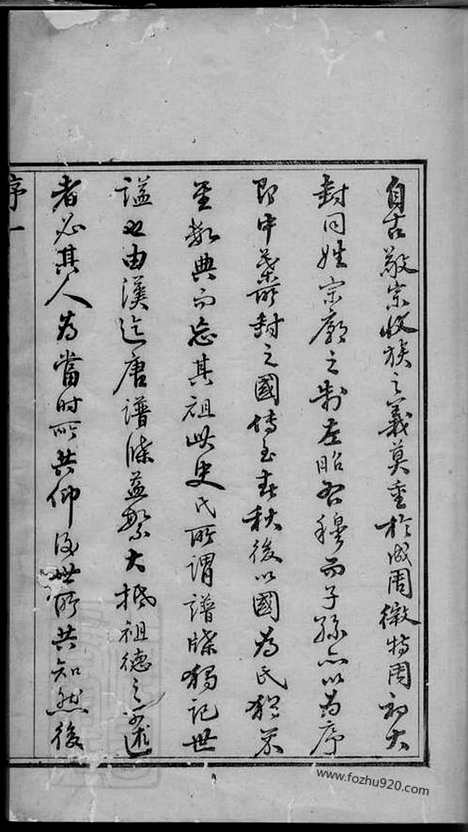 自古敬宗收族之義莫重於成周微特周初大
封同姓宗廟之制左昭右穆而子孫亦以為序
即中葉所封之國傳至春秋後以國為氏猶不
至數典而忘其祖此史氏所謂譜牒獨記世
諡也由漢迄唐譜牒益繁大抵祖德之可述
者必其人為當時所共仰後世所共知然後
序一
www.fozhu920.com